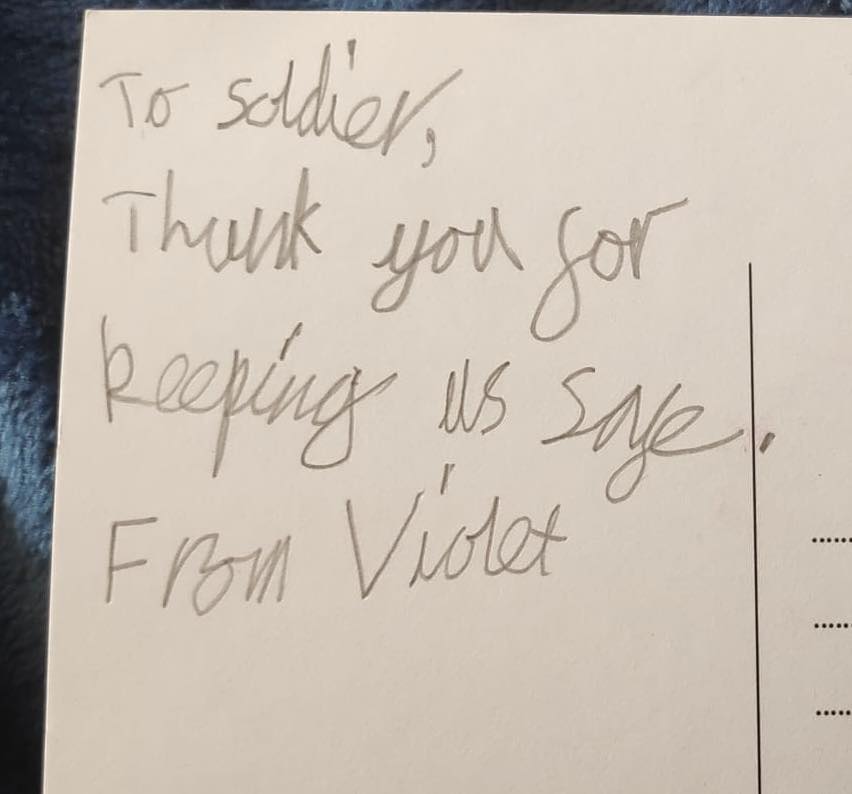 To soldier,
Thank you for
keeping us safe.
From Violet